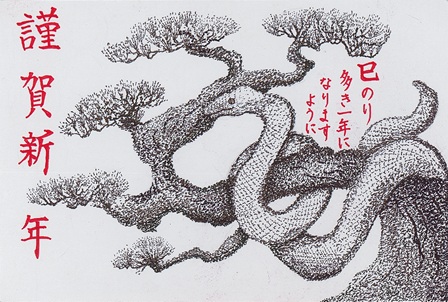 謹賀新年
巳のり
多き一年に
なります
ように